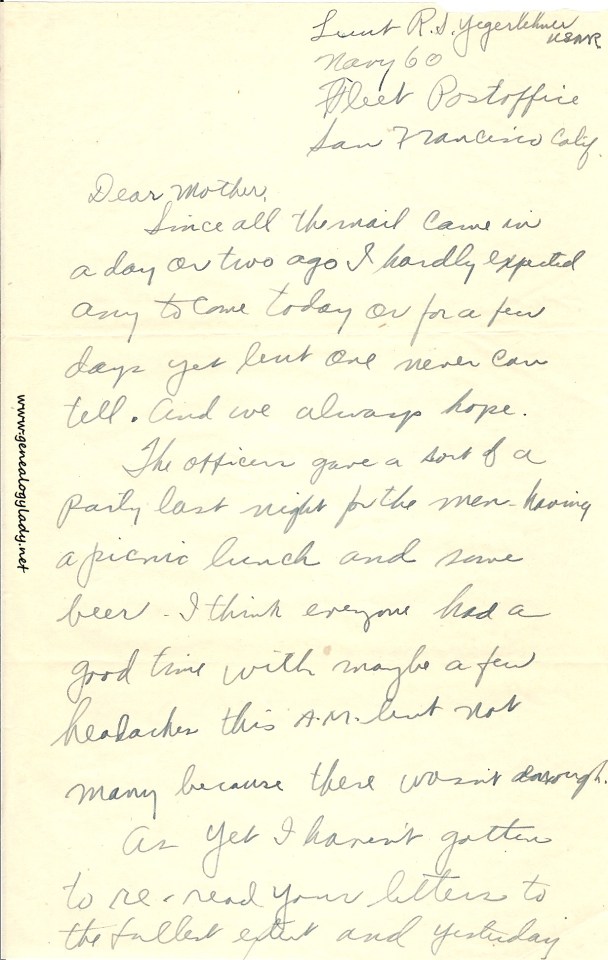 Lieut R.S. Yegerlehner
USNR
Navy 60
Fleet Postoffice
San Francisco Calif.
Dear Mother,
Since all the mail came in
a day or two ago I hardly expected
any to come today or for a few
days yet but one never can
tell. And we always hope.
The officers gave a sort of a
party last night for the men - having
a picnic lunch and some
beer - I think everyone had a
good time with maybe a few
headaches this A.M. but not
many because there wasn't enough.
As yet I haven't gotten
to re-read your letters to
the fullest extent and yesterday
www.genealogylady.net